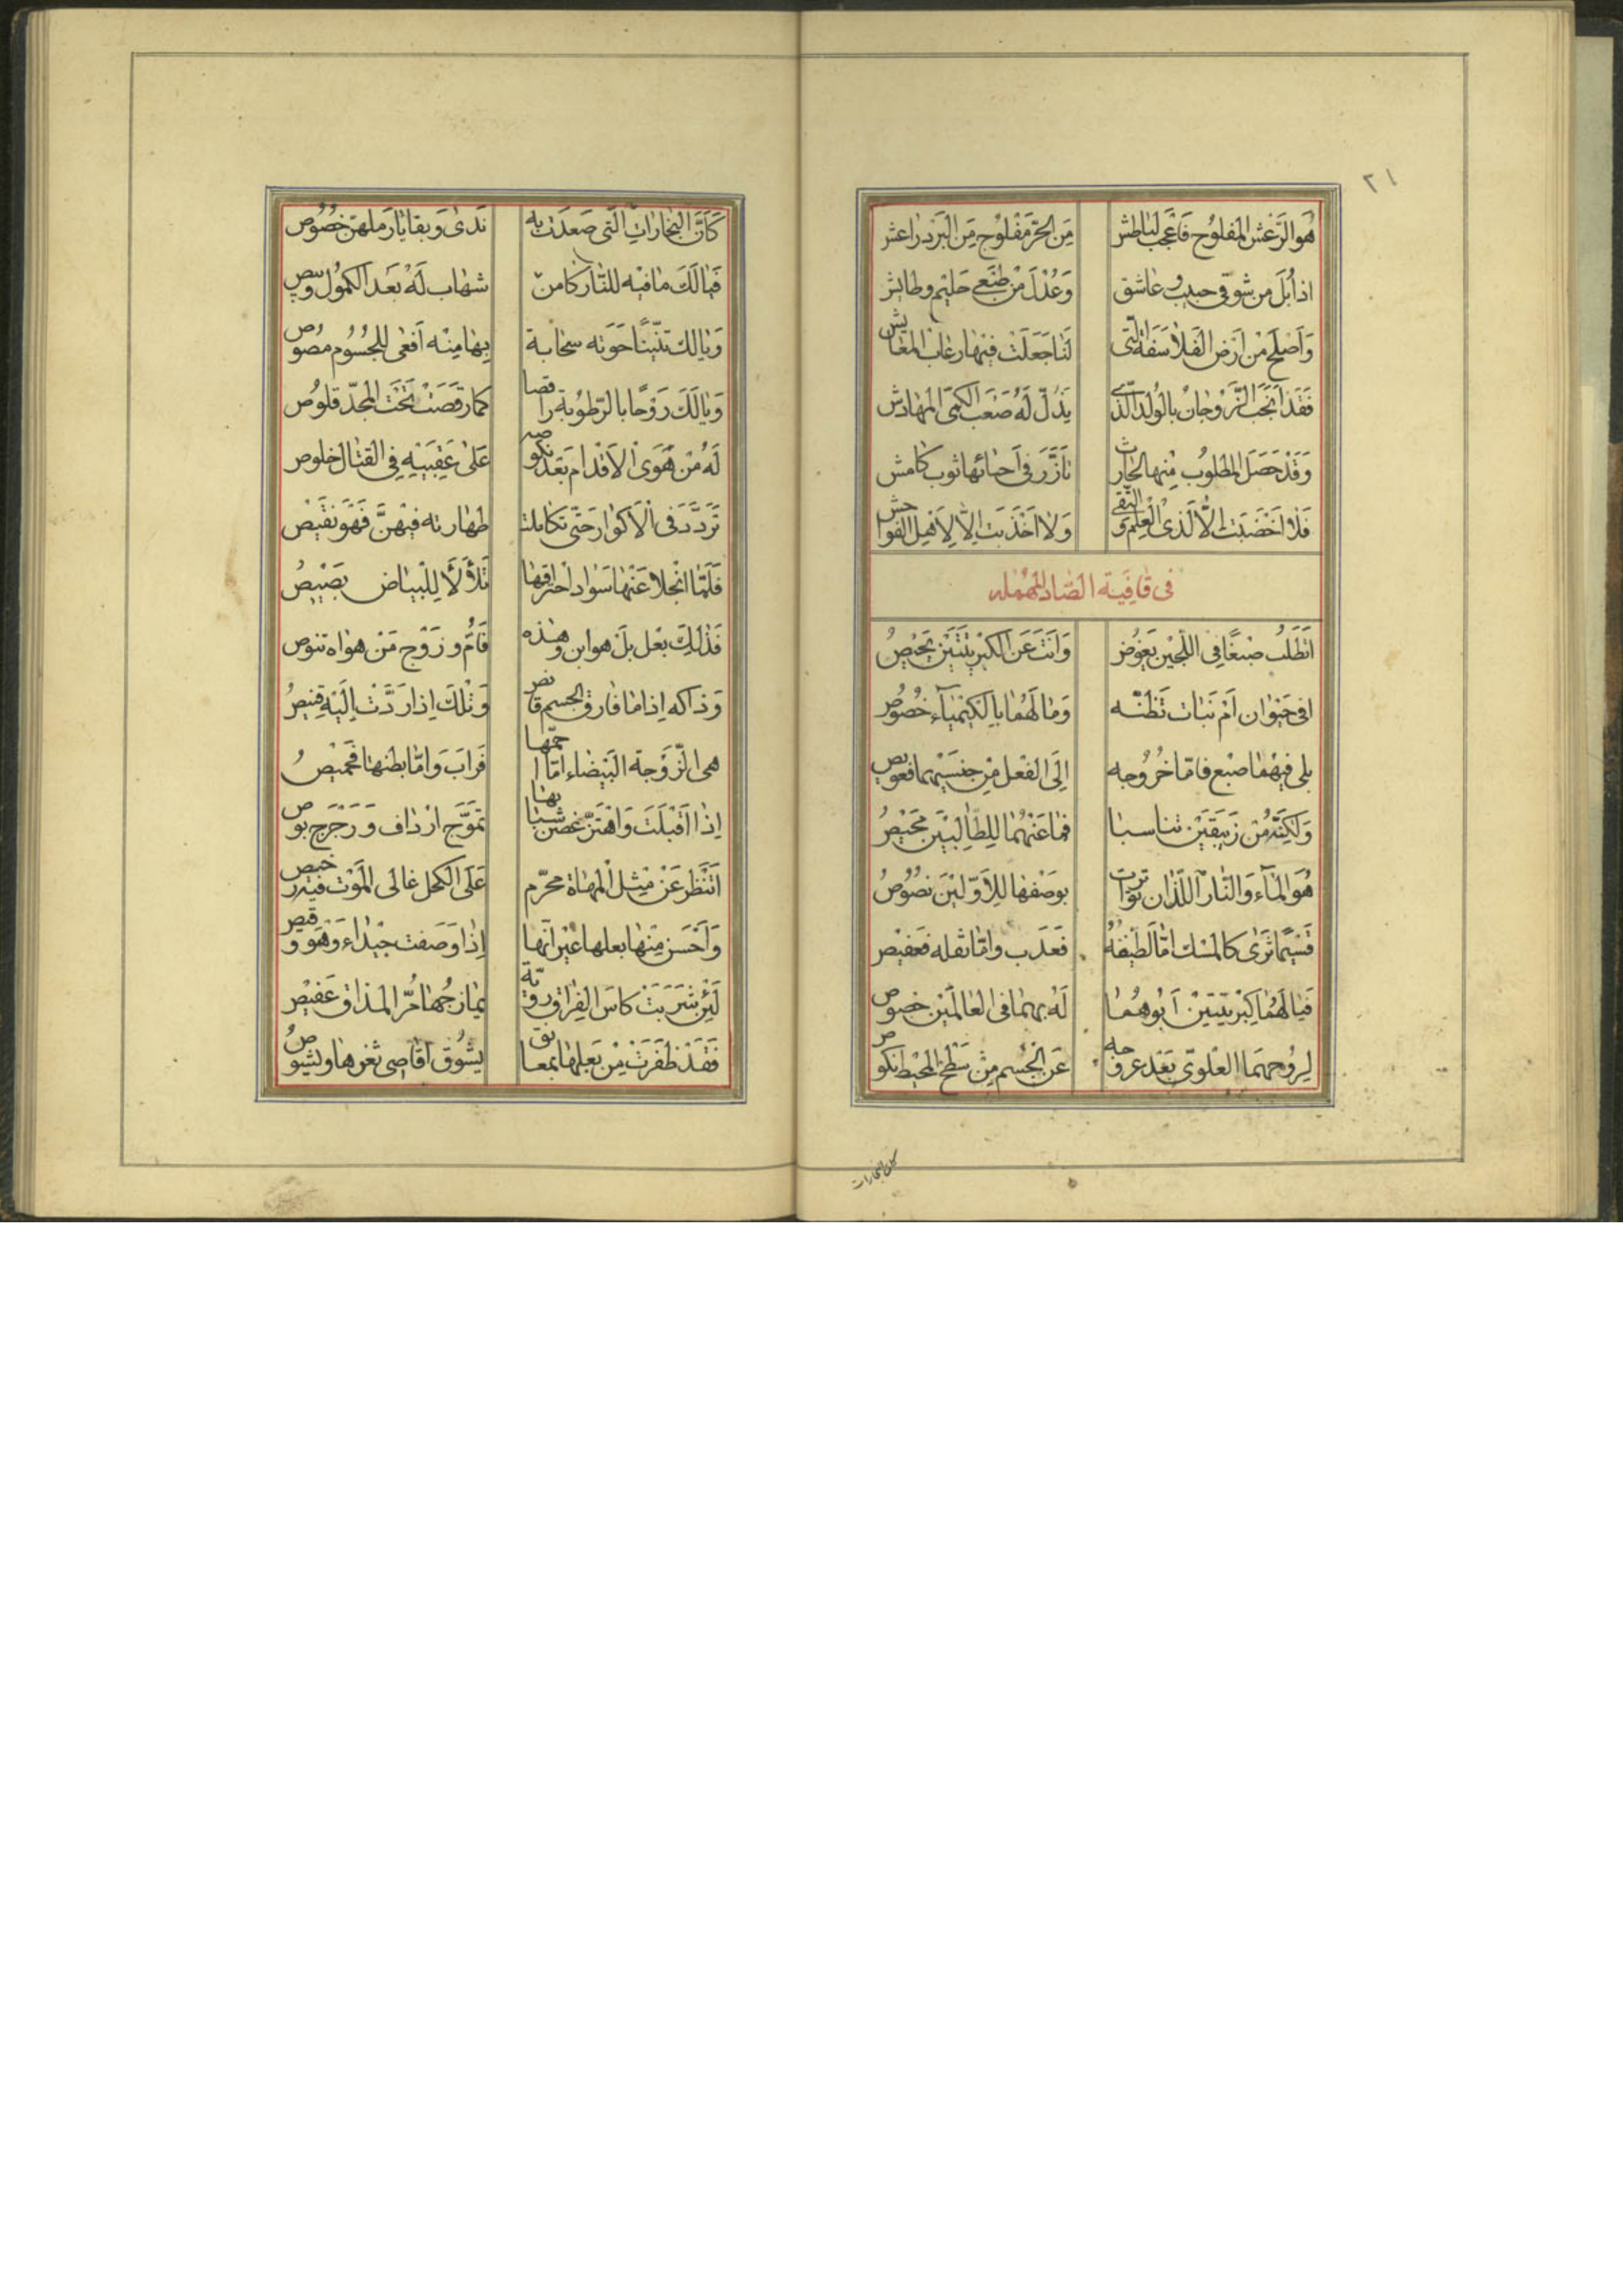 ٢١
هُوَ الرَّعْش المَفلوُج فَاعْجَب لِبَاطش مِنَ الحَرّ مَفْلوُج مِنَ البَرْد راعش
اذا بُلّ من شَوقى حبيب وعاشق وَعُدّلَ مْن طَبْعَى حَليْم وطايش
وَاَصْلح مْن اَرْض الفَلاسفَة الّتى لَنا جَعَلَت فيْها رغاب المعايش
فَقَد اَنجَبَ الزّوجان بالوُلد الّذى يَذلّ لَهُ صَعب الكمىّ المهارش
وَقَدْ حَصَل المطلوُب مِنها لحارث تازّرَ فى اَحيائها ثوب كامش
فلا اَخْضَبَت الّا لذى العِلْم والتّقى وَلا اَخذَبَت الّا لِاَهْل الفواحش
فى قافِيَة الصّاد المُهمله
اتَطلُب صَبغًا فى اللّجَين يَغوُص وَانَت عَن الكبْريْتَيَن تَحيْصُ
افى حَيَوان اَمْ نَبات تَظنّه وَما لَهُما بالكيْمياءِ خُصُوصُ
بلى فيْهِمْا صبْغ فامّا خُرُوجه اِلَى الفعْل مِن جنسَيْهِما فعويص
وَلكِنّهُ مْن زَيبَقَيْن تناسبا فما عَنهُما لِلطّالِبيْن مَحيْصُ
هُوَ المآء وَالنّار اللّذان تواترت بوَصْفها لِلاَوّليْنَ نصُوُصُ
قَسيْما ثَرىً كالمسْك امّا لَطيْفهُ فعَذب وامّا ثفله فعَفيْص
فَيا لَهُما كِبْريْتَيْنِ اَبُوْهُما لهُ بهِما فى العالَمَيْن خصُوص
لِروُحهِمَا العْلوىّ بَعْد عروجه عَن الجْسم مِنْ سَطْح المحيْط نكوص
كان البخارات
كَاَنّ البُخارات الَّتى صَعَدَت به نَدىً وَبقايا رَملهنّ خصُوُص
فيالَكَ مافيْه للنّار كامن شهاب لَهُ بَعَد الكمُوُل وبيص
وَيالك تنّيْنًا حَوَته سَحابة بِها مِنْه اَفعى للِجُسُوم مصُوص
وَيالَكَ رَوْحًا بالرّطوُبة راقصا كما رَقَصَتْ تَحْتَ المجدّ قلوُص
لَهُ مْن هَوَى الاَقدام بَعْد نكوصه عَلى عَقِبَيْهِ فِى القتال خلوص
تَردّدَ فى الاَكوار حَتّى تكاملت طهارته فيْهنّ فَهوَ نقيْص
فَلَمّا انْجلا عَنْها سَواد احْتراقها تَلألأ لِلْبياض بَصْيصُ
فذلِك بَعْل بَلْ هو ابن وهذه فَاُمّ وزَوْج مَن هواه تنوص
وَذاكه اِذا ما فارق الجسم قانص وَتْلكَ اِذا رَدّت اِلَيْهِ قِنيصُ
هى الزّوْجة البَيْضاء امّا احمّها فَرابَ وَامّا بطنها فَخَميصُ
اِذا اقْبَلَتْ وَاهْتزّ غصن شبابها تمَوّج ارْداف وَرَجْرَج بوص
اتَنْظر عَنْ مْثل المهاة محرّم عَلَى الكحل غالى المَوْت فيْه رخيص
وَاَحْسَن مِنها بعلها غيْر انّها اِذا وَصَفت جيْداء وَهوَ وقيص
لَئِن شَرَبَتْ كاسَ الفِراق رويّة يمازجُها مُرّ المذاق عَفيْص
فَقَدْ ظَفرَت مِنْ بَعلها بمعانق يشُوق اقاصى ثغرها ويشوص